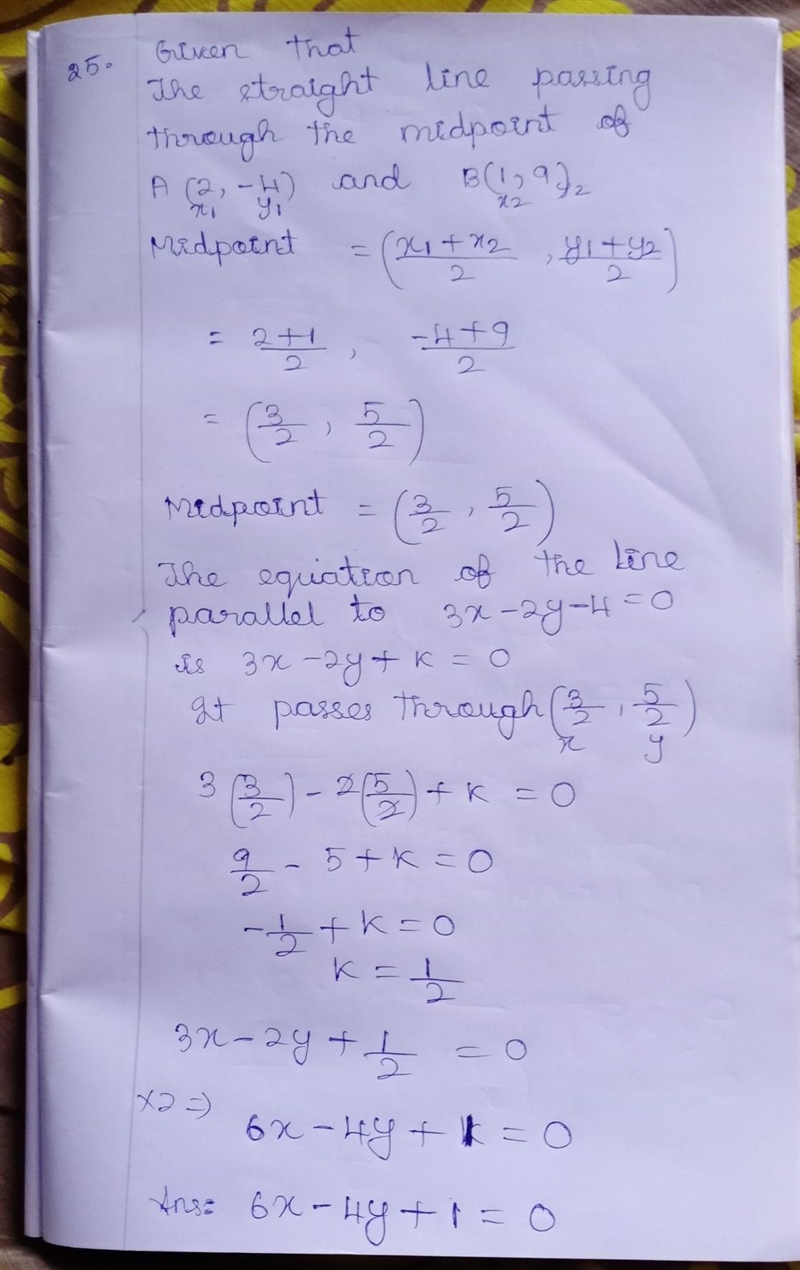 25. Given that
The straight line passing
through the midpoint of
A (2, -4) and B(1, 9)
x1 y1 x2 y2
Midpoint = (x1 + x2 / 2 , y1 + y2 / 2)
= 2+1 / 2 , -4+9 / 2
= (3/2 , 5/2)
Midpoint = (3/2 , 5/2)
The equation of the line
parallel to 3x - 2y - 4 = 0
is 3x - 2y + k = 0
It passes through (3/2 , 5/2)
x y
3 (3/2) - 2(5/2) + k = 0
9/2 - 5 + k = 0
-1/2 + k = 0
k = 1/2
3x - 2y + 1/2 = 0
×2 ⇒
6x - 4y + k = 0
Ans: 6x - 4y + 1 = 0